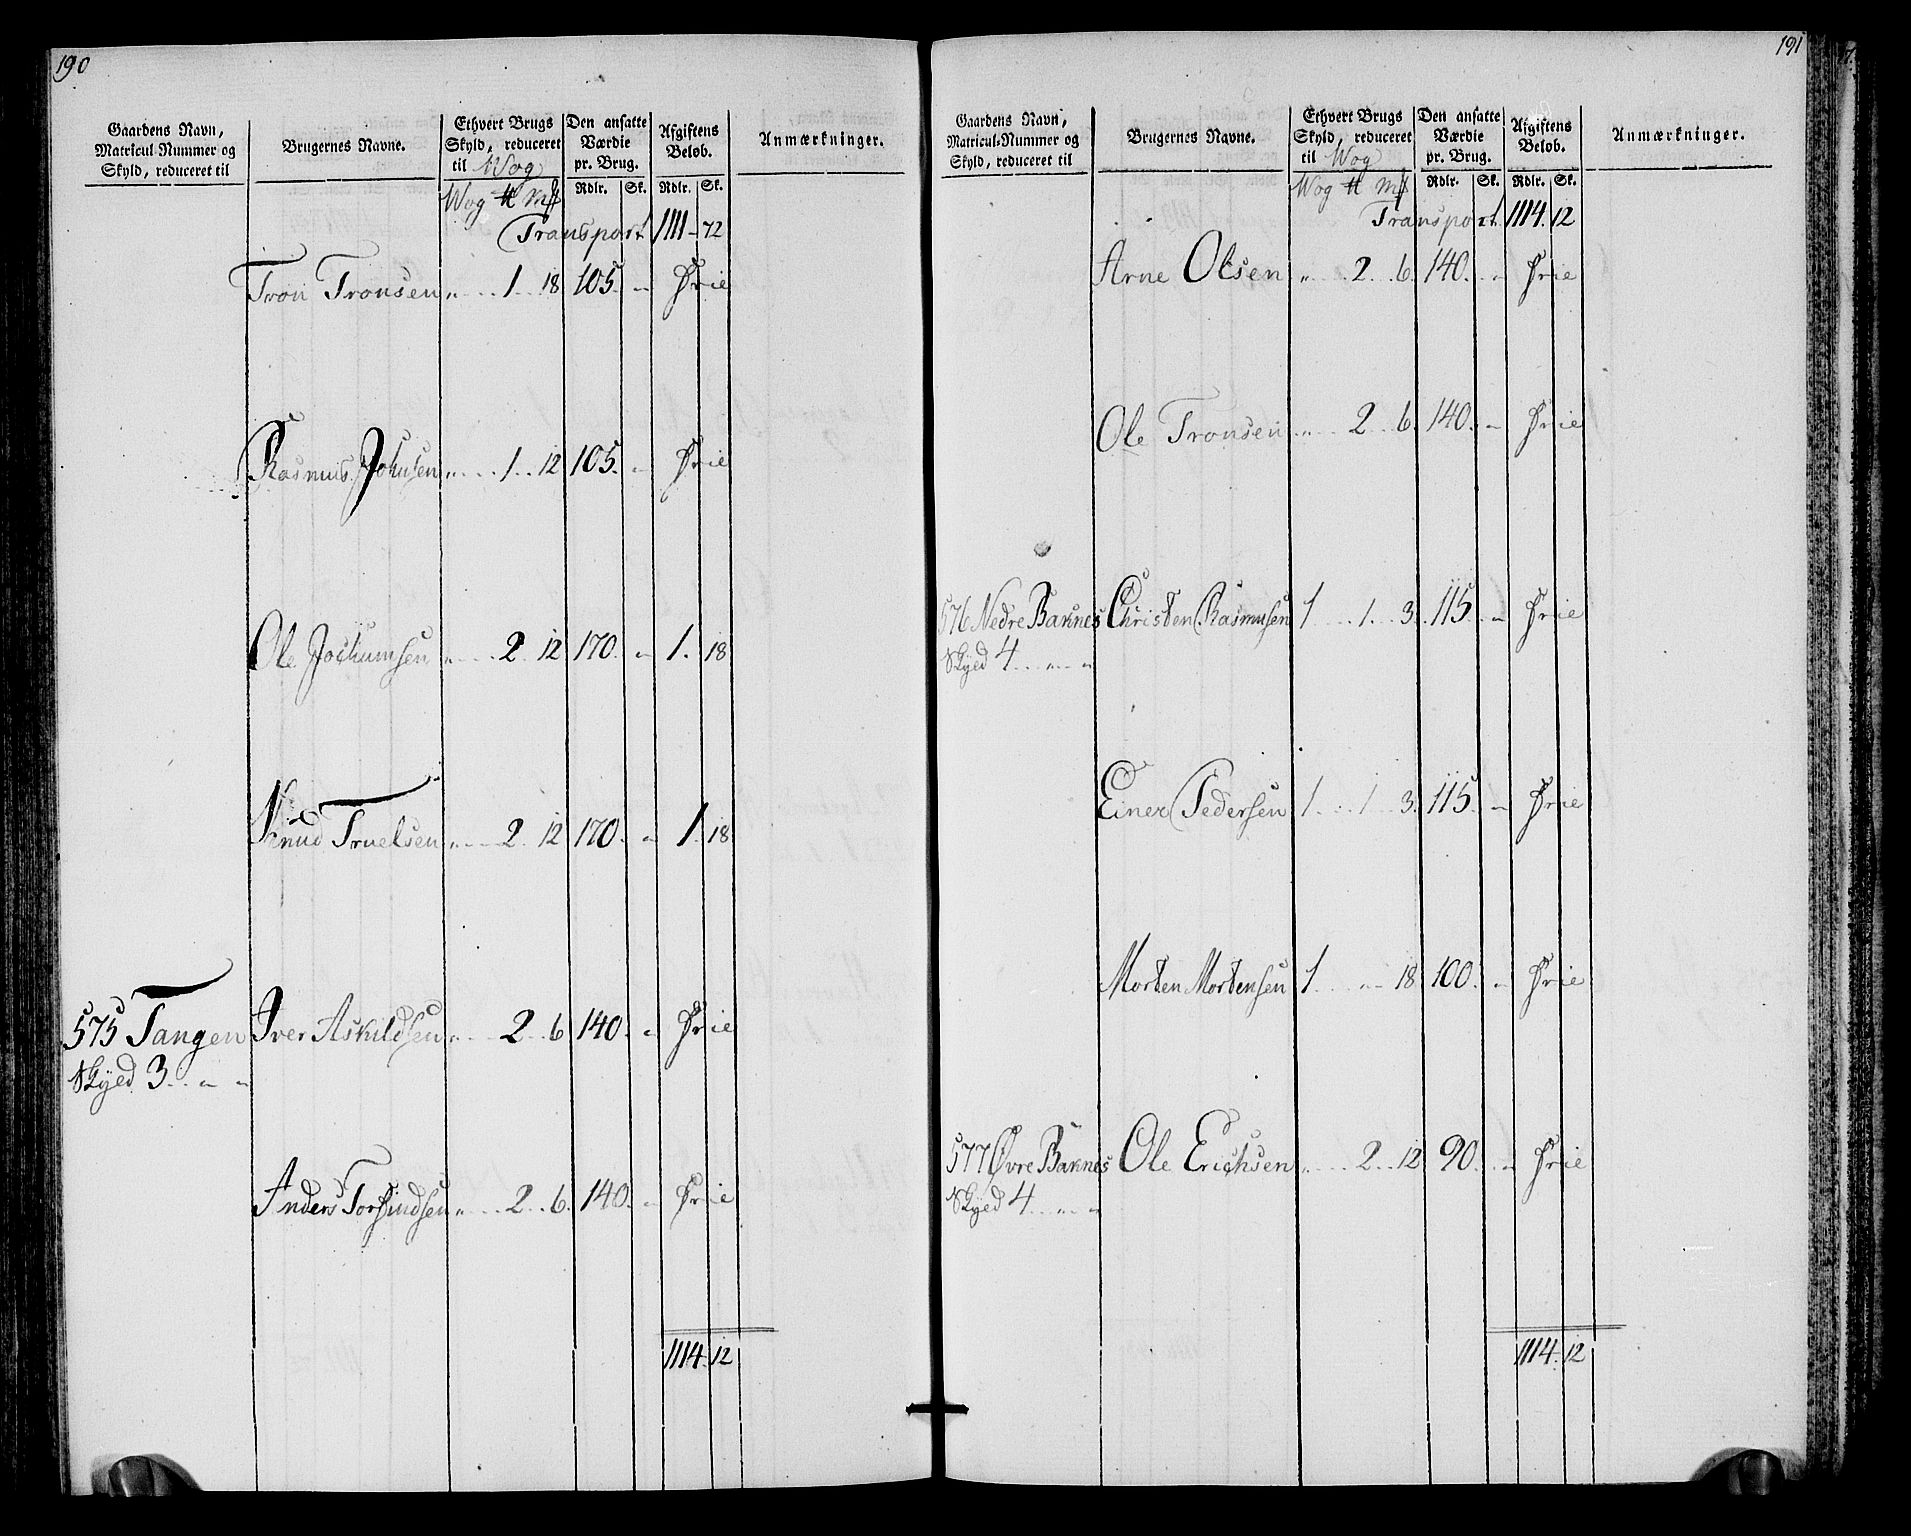 190
Gaardens Navn,
Matricul-Nummer og
Skyld, reduceret til
Brugernes Navne.
Ethvert Brugs
Skyld, reduceret
til Wog
Den ansatte
Værdie
pr. Brug.
Afgiftens
Beløb.
Anmærkninger.
Wog ℔ Mk Rdlr. Sk. Rdlr. Sk.
Transport 1111 - 72
Tron Tronsen „ 1 18 105. „ Frie
Rasmus Johnsen „ 1 12 105. „ Frie
Ole Jochumsen „ 2 12 170. „ 1. 18
Knud Truelsen „ 2 12 170. „ 1. 18
575 Tangen Iver Askildsen „ 2 6 140. „ Frie
Skyed 3 „ „
Anders Torfindsen „ 2 6. 140. „ Frie
1114. 12
191
Gaardens Navn,
Matricul-Nummer og
Skyld, reduceret til
Brugernes Navne.
Ethvert Brugs
Skyld, reduceret
til Wog
Den ansatte
Værdie
pr. Brug.
Afgiftens
Beløb.
Anmærkninger.
Wog ℔ Mk Rdlr. Sk. Rdlr. Sk.
Transport 1114. 12
Arne Olsen „ 2 6. 140. „ Frie
Ole Tronsen „ 2 6. 140. „ Frie
576 Nedre Baknes Christen Rasmusen 1 1 3. 115. „ Frie
Skyed 4 „ „
Einer Pedersen 1 1 3. 115. „ Frie
Morten Mortensen 1 „ 18 100. „ Frie
577 Øvre Baknes Ole Erichsen „ 2 12 90. „ Frie
Skyed 4 „ „
1114. 12